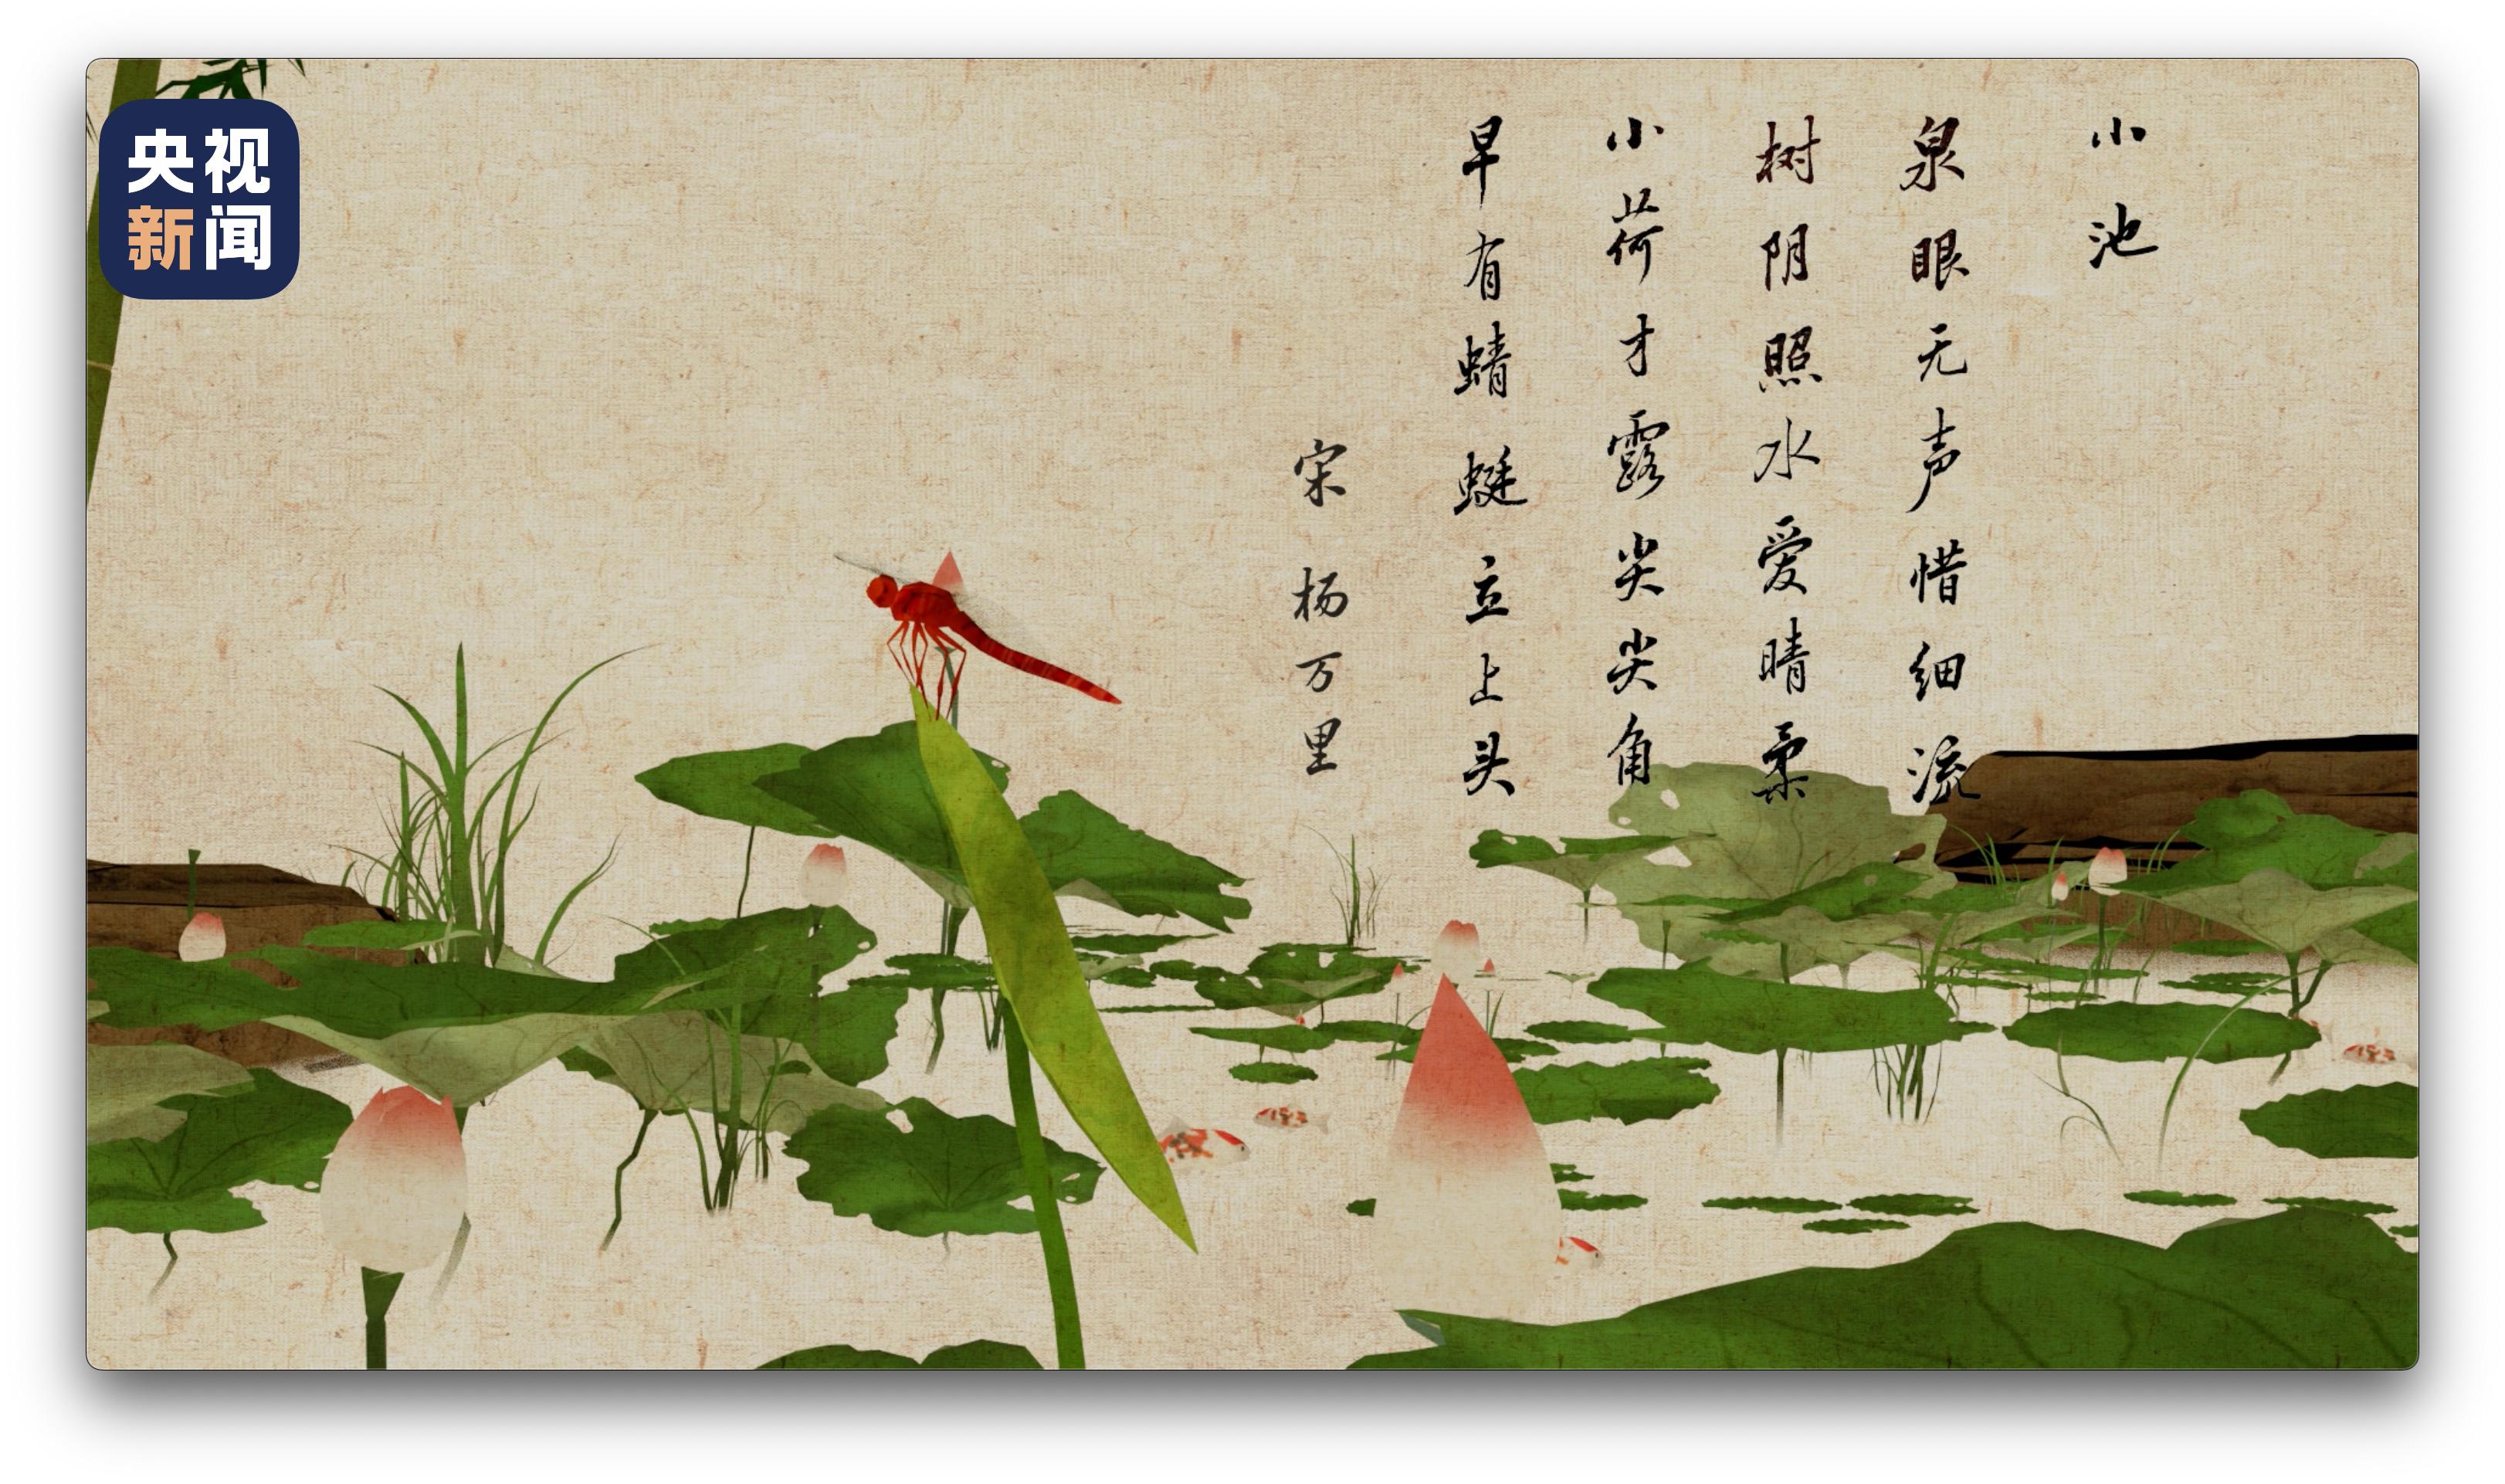 央视
新闻
小池
泉眼无声惜细流
树阴照水爱晴柔
小荷才露尖尖角
早有蜻蜓立上头
宋 杨万里